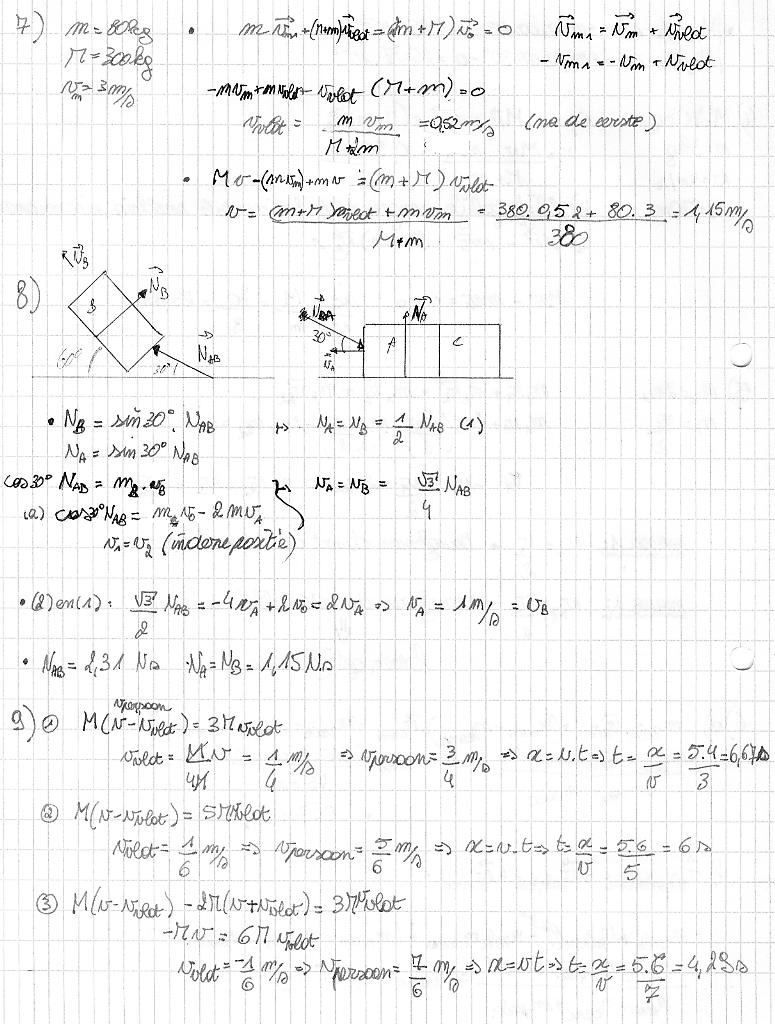 7) m = 80kg • m v⃗m1 + (M+m) v⃗vlot = (2m + M) v⃗0 = 0 v⃗m1 = v⃗m + v⃗vlot
M = 300kg -vm1 = -vm + vvlot
vm = 3 m/s -mvm + mvvlot - vvlot (M+m) = 0
vvlot = m vm / M+2m = 0,52 m/s (na de eerste)
• Mv - (m vm) + mv = (m + M) vvlot
v = (m+M) vvlot + m vm / M+m = 380. 0,52 + 80. 3 / 380 = 1,15 m/s
8) v⃗B B N⃗B N⃗AB 60° 30° N⃗BA 30° v⃗A N⃗A A C
• NB = sin 30° . NAB ↦ NA = NB = 1/2 NAB (1)
NA = sin 30° NAB
cos 30° NAB = mB . vB ↦ vA = vB = √3/4 NAB
(2) cos 30° NAB = mc v0 - 2 m vA
v1 = v2 (
• (2) en (1) : √3/2 NAB = -4 vA + 2 v0 = 2 vA ⇒ vA = 1 m/s = vB
• NAB = 2,31 Ns NA = NB = 1,15 N.s
9) ① M(v - vvlot) = 3M vvlot
vpersoon
vvlot = M v / 4M = 1/4 m/s ⇒ vpersoon = 3/4 m/s ⇒ x = v.t ⇒ t = x/v = 5.4/3 = 6,67s
② M(v - vvlot) = 5M vvlot
vvlot = 1/6 m/s ⇒ vpersoon = 5/6 m/s ⇒ x = v.t ⇒ t = x/v = 5.6/5 = 6s
③ M(v - vvlot) - 2M(v + vvlot) = 3M vvlot
-Mv = 6M vvlot
vvlot = -1/6 m/s ⇒ vpersoon = 7/6 m/s ⇒ x = vt ⇒ t = x/v = 5.6/7 = 4,29s